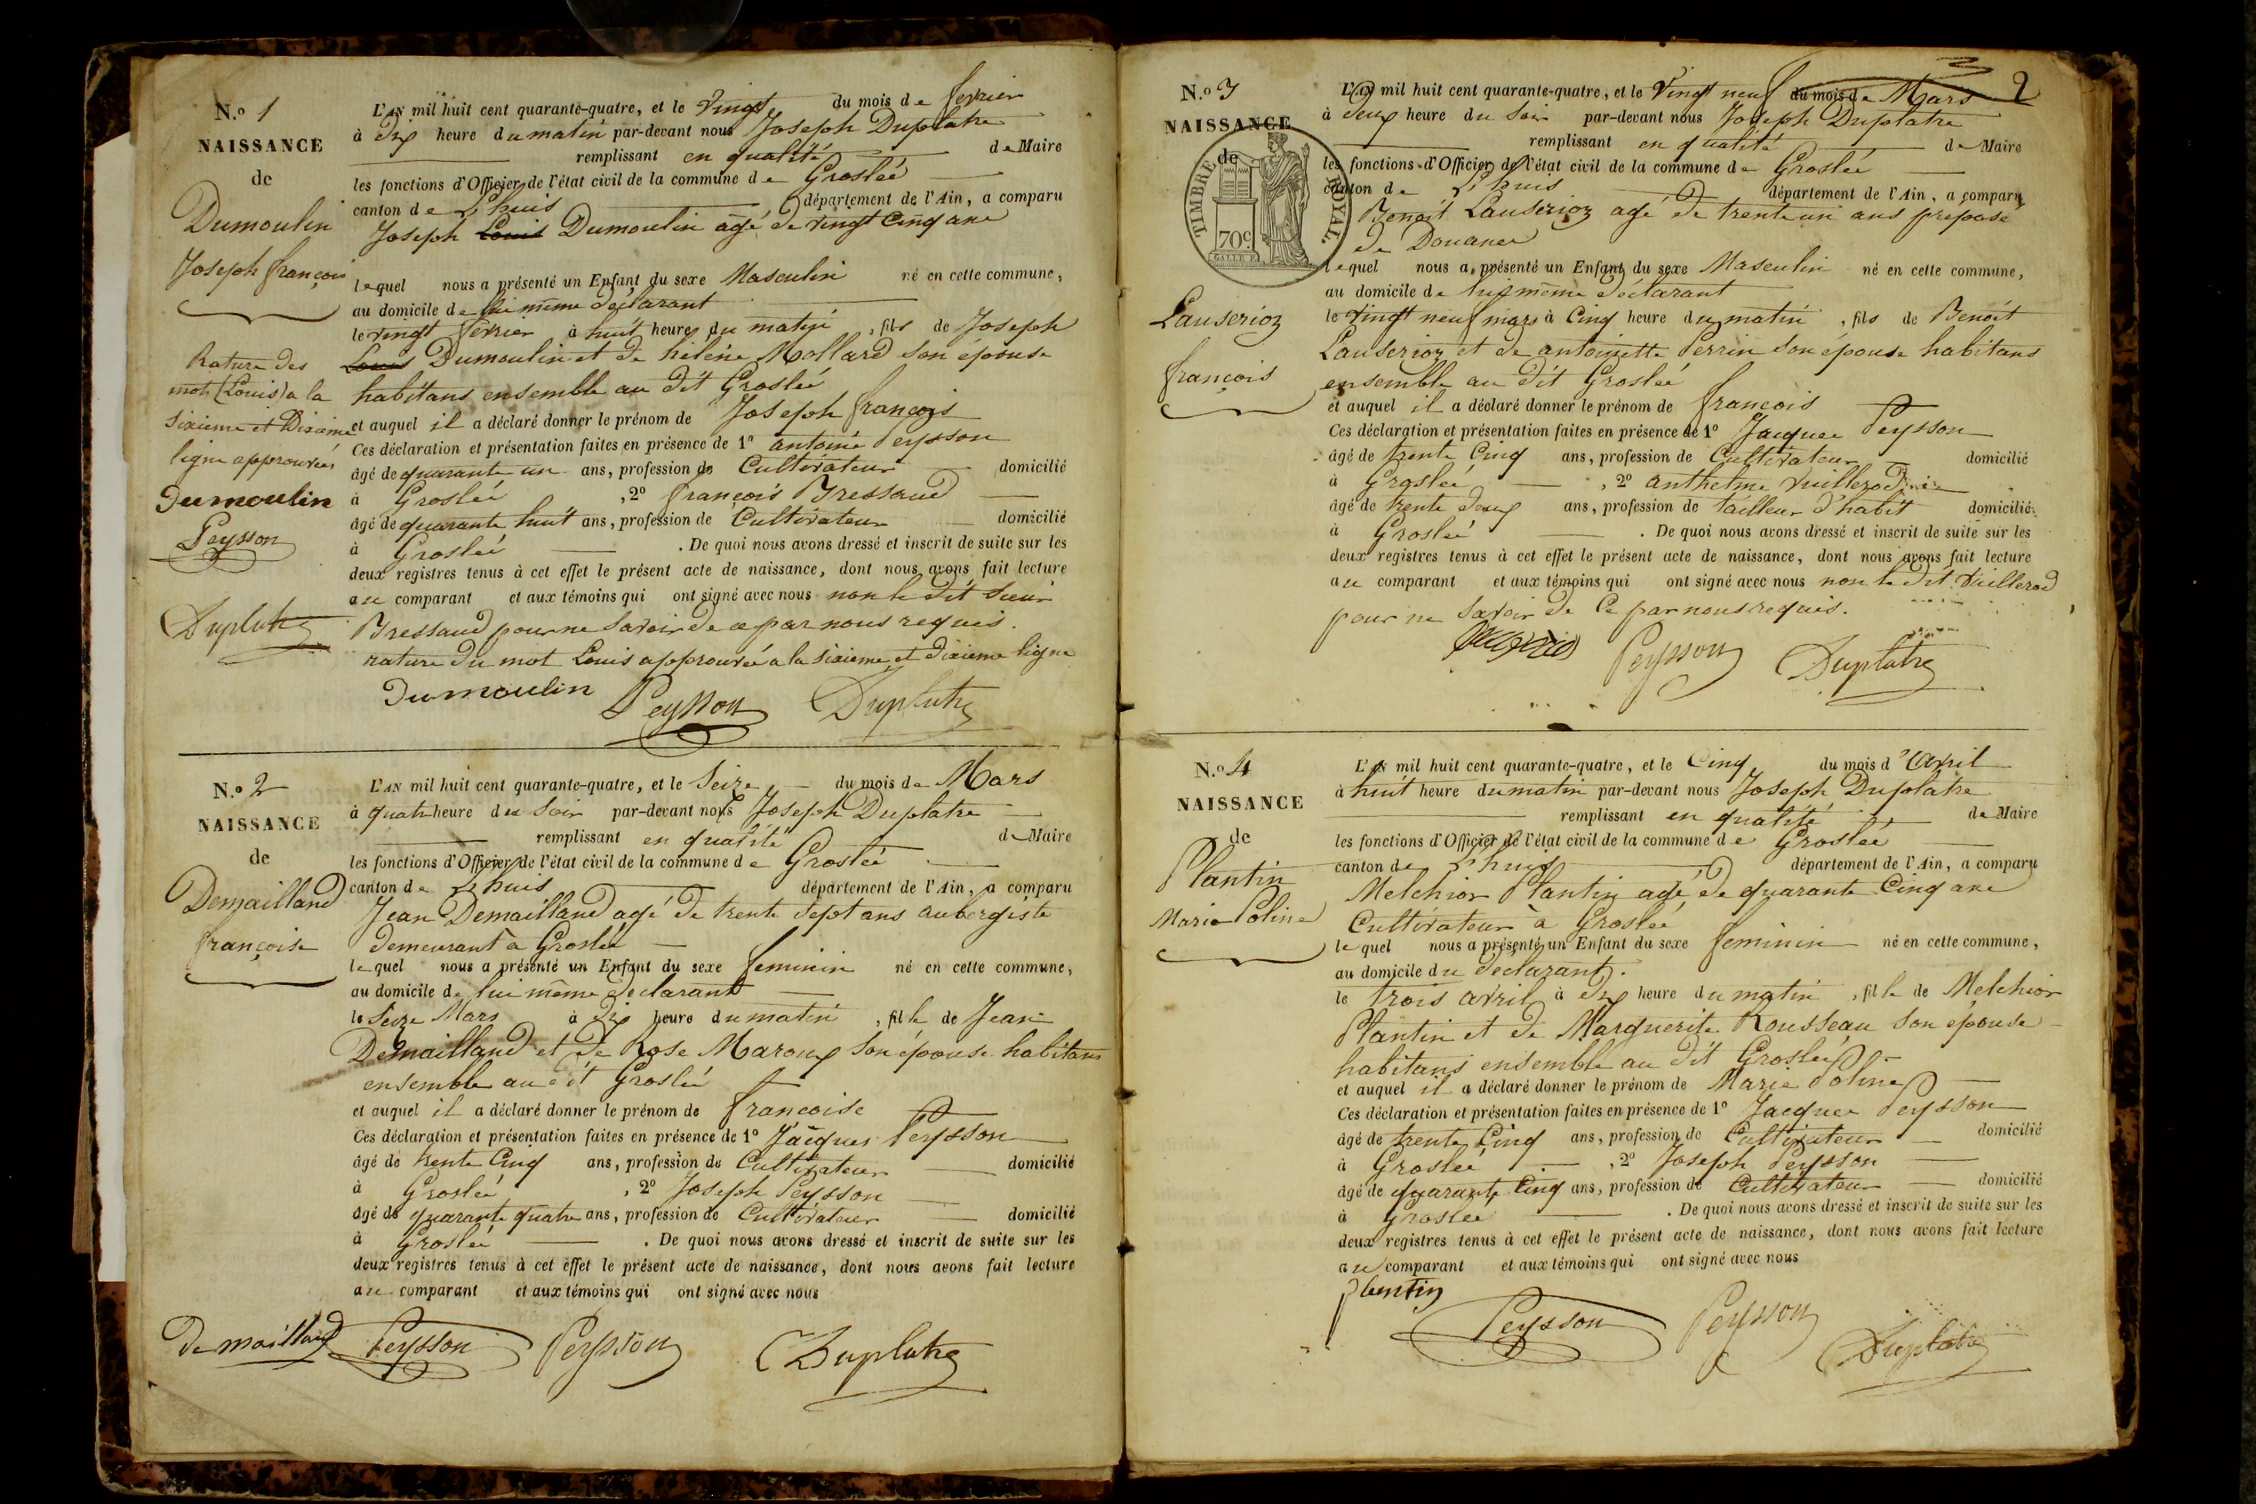 N.o 1
NAISSANCE
de
Dumoulin
Joseph françois
Rature des
mots (Louis) a la
sixieme et Dixieme
ligne approuvées
Dumoulin
Peysson
Duplatre
L'AN mil huit cent quarante-quatre, et le vingt du mois de fevrier
à dix heure du matin par-devant nous Joseph Duplatre
remplissant en qualité de Maire
les fonctions d'Officier de l'état civil de la commune de Groslée
canton de L'huis département de l'Ain, a comparu
Joseph Louis Dumoulin agé de vingt cinq ans
lequel nous a présenté un Enfant du sexe Masculin né en cette commune,
au domicile de lui même déclarant
le vingt fevrier à huit heures du matin, fils de Joseph
Louis Dumoulin et de hélène Mollard son épouse
habitans ensemble au dit Groslée
et auquel il a déclaré donner le prénom de Joseph françois
Ces déclaration et présentation faites en présence de 1º antoine Peysson
âgé de quarante un ans, profession de Cultivateur domicilié
à Groslée, 2º françois Bressaud
âgé de quarante huit ans, profession de Cultivateur domicilié
à Groslée. De quoi nous avons dressé et inscrit de suite sur les
deux registres tenus à cet effet le présent acte de naissance, dont nous avons fait lecture
au comparant et aux témoins qui ont signé avec nous non le dit sieur
Bressaud pour ne savoir de ce par nous requis.
rature du mot Louis approuvée a la sixieme et dixieme ligne
Dumoulin Peysson Duplatre
N.o 2
NAISSANCE
de
Demailland
françoise
L'AN mil huit cent quarante-quatre, et le Seize du mois de Mars
à quatre heure du soir par-devant nous Joseph Duplatre
remplissant en qualité de Maire
les fonctions d'Officier de l'état civil de la commune de Groslée
canton de L'huis département de l'Ain, a comparu
Jean Demailland agé de trente sept ans aubergiste
demeurant à Groslée
lequel nous a présenté un Enfant du sexe feminin né en cette commune,
au domicile de lui même déclarant
le Seize Mars à dix heure du matin, fille de Jean
Demailland et de Rose Maroux son épouse habitans
ensemble au dit Groslée
et auquel il a déclaré donner le prénom de francoise
Ces déclaration et présentation faites en présence de 1º Jacques Peysson
âgé de trente Cinq ans, profession de Cultivateur domicilié
à Groslée, 2º Joseph Peysson
âgé de quarante quatre ans, profession de Cultivateur domicilié
à Groslée. De quoi nous avons dressé et inscrit de suite sur les
deux registres tenus à cet effet le présent acte de naissance, dont nous avons fait lecture
au comparant et aux témoins qui ont signé avec nous
Demailland Peysson Peysson Duplatre
2
N.o 3
NAISSANCE
de
TIMBRE ROYAL.
70c
Lauserioz
françois
L'AN mil huit cent quarante-quatre, et le Vingt neuf du mois de Mars
à deux heure du Soir par-devant nous Joseph Duplatre
remplissant en qualité de Maire
les fonctions d'Officier de l'état civil de la commune de Groslée
canton de L'huis département de l'Ain, a comparu
Benoit Lauserioz agé de trente un ans préposé
de Douanes
lequel nous a présenté un Enfant du sexe Masculin né en cette commune,
au domicile de lui même déclarant
le vingt neuf mars à Cinq heure du matin, fils de Benoit
Lauserioz et de antoinette Perrin son épouse habitans
ensemble au dit Groslée
et auquel il a déclaré donner le prénom de francois
Ces déclaration et présentation faites en présence de 1º Jacques Peysson
âgé de trente Cinq ans, profession de Cultivateur domicilié
à Groslée, 2º anthelme Vuillerod
âgé de trente deux ans, profession de tailleur d'habit domicilié
à Groslée. De quoi nous avons dressé et inscrit de suite sur les
deux registres tenus à cet effet le présent acte de naissance, dont nous avons fait lecture
au comparant et aux témoins qui ont signé avec nous non le dit Vuillerod
pour ne savoir de Ce par nous requis.
Peysson Duplatre
N.o 4
NAISSANCE
de
Plantin
Marie Poline
L'AN mil huit cent quarante-quatre, et le Cinq du mois d'avril
à huit heure du matin par-devant nous Joseph Duplatre
remplissant en qualité de Maire
les fonctions d'Officier de l'état civil de la commune de Groslée
canton de L'huis département de l'Ain, a comparu
Melchior Plantin agé de quarante Cinq ans
Cultivateur à Groslée
lequel nous a présenté un Enfant du sexe feminin né en cette commune,
au domicile du déclarant.
le trois avril à dix heure du matin, fille de Melchior
Plantin et de Marguerite Rousseau son épouse
habitans ensemble au dit Groslée
et auquel il a déclaré donner le prénom de Marie Poline
Ces déclaration et présentation faites en présence de 1º Jacques Peysson
âgé de trente Cinq ans, profession de Cultivateur domicilié
à Groslée, 2º Joseph Peysson
âgé de quarante Cinq ans, profession de Cultivateur domicilié
à Groslée. De quoi nous avons dressé et inscrit de suite sur les
deux registres tenus à cet effet le présent acte de naissance, dont nous avons fait lecture
au comparant et aux témoins qui ont signé avec nous
plantin Peysson Peysson Duplatre